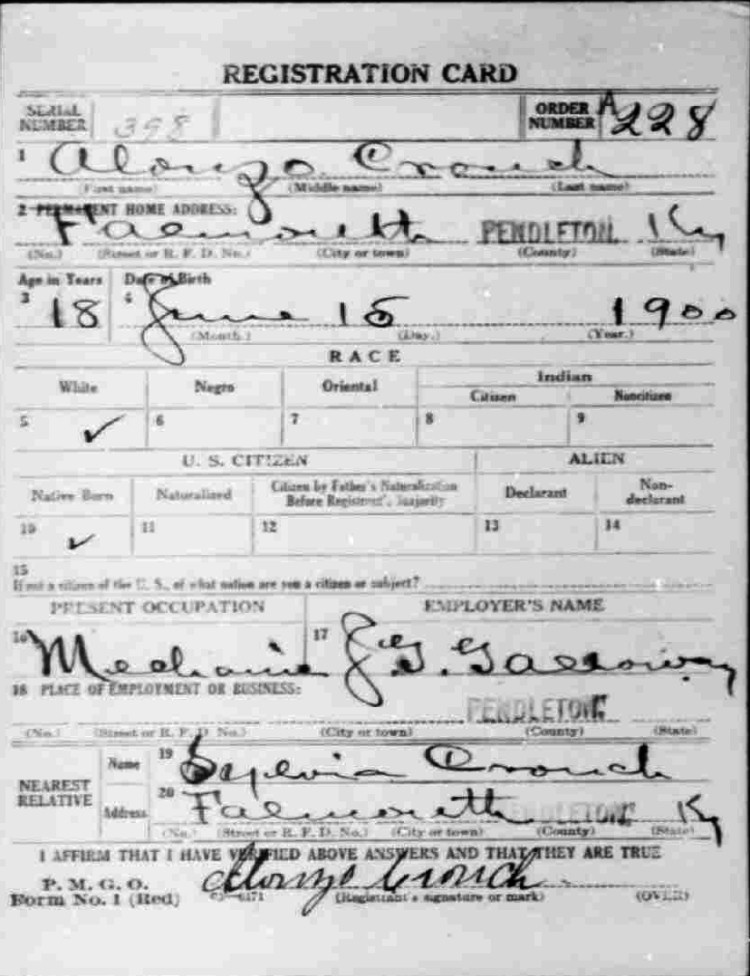 REGISTRATION CARD
SERIAL NUMBER 398 ORDER NUMBER A228
1 Alonzo Crouch
(First name) (Middle name) (Last name)
2 PERMANENT HOME ADDRESS:
Falmouth PENDLETON Ky
(No.) (Street or R. F. D. No.) (City or town) (County) (State)
Age in Years Date of Birth
3 18 4 June 15 1900
(Month.) (Day.) (Year.)
RACE
White Negro Oriental Indian
Citizen Noncitizen
5 ✓ 6 7 8 9
U. S. CITIZEN ALIEN
Native Born Naturalized Citizen by Father's Naturalization Before Registrant's Majority Declarant Non-declarant
10 ✓ 11 12 13 14
15
If not a citizen of the U. S., of what nation are you a citizen or subject?
PRESENT OCCUPATION EMPLOYER'S NAME
16 Mechanic 17 J. G. Galloway
18 PLACE OF EMPLOYMENT OR BUSINESS:
PENDLETON
(No.) (Street or R. F. D. No.) (City or town) (County) (State)
NEAREST RELATIVE
Name 19 Sylvia Crouch
Address 20 Falmouth PENDLETON Ky
(No.) (Street or R. F. D. No.) (City or town) (County) (State)
I AFFIRM THAT I HAVE VERIFIED ABOVE ANSWERS AND THAT THEY ARE TRUE
P. M. G. O.
Form No. 1 (Red) Alonzo Crouch
(Registrant's signature or mark) (OVER)